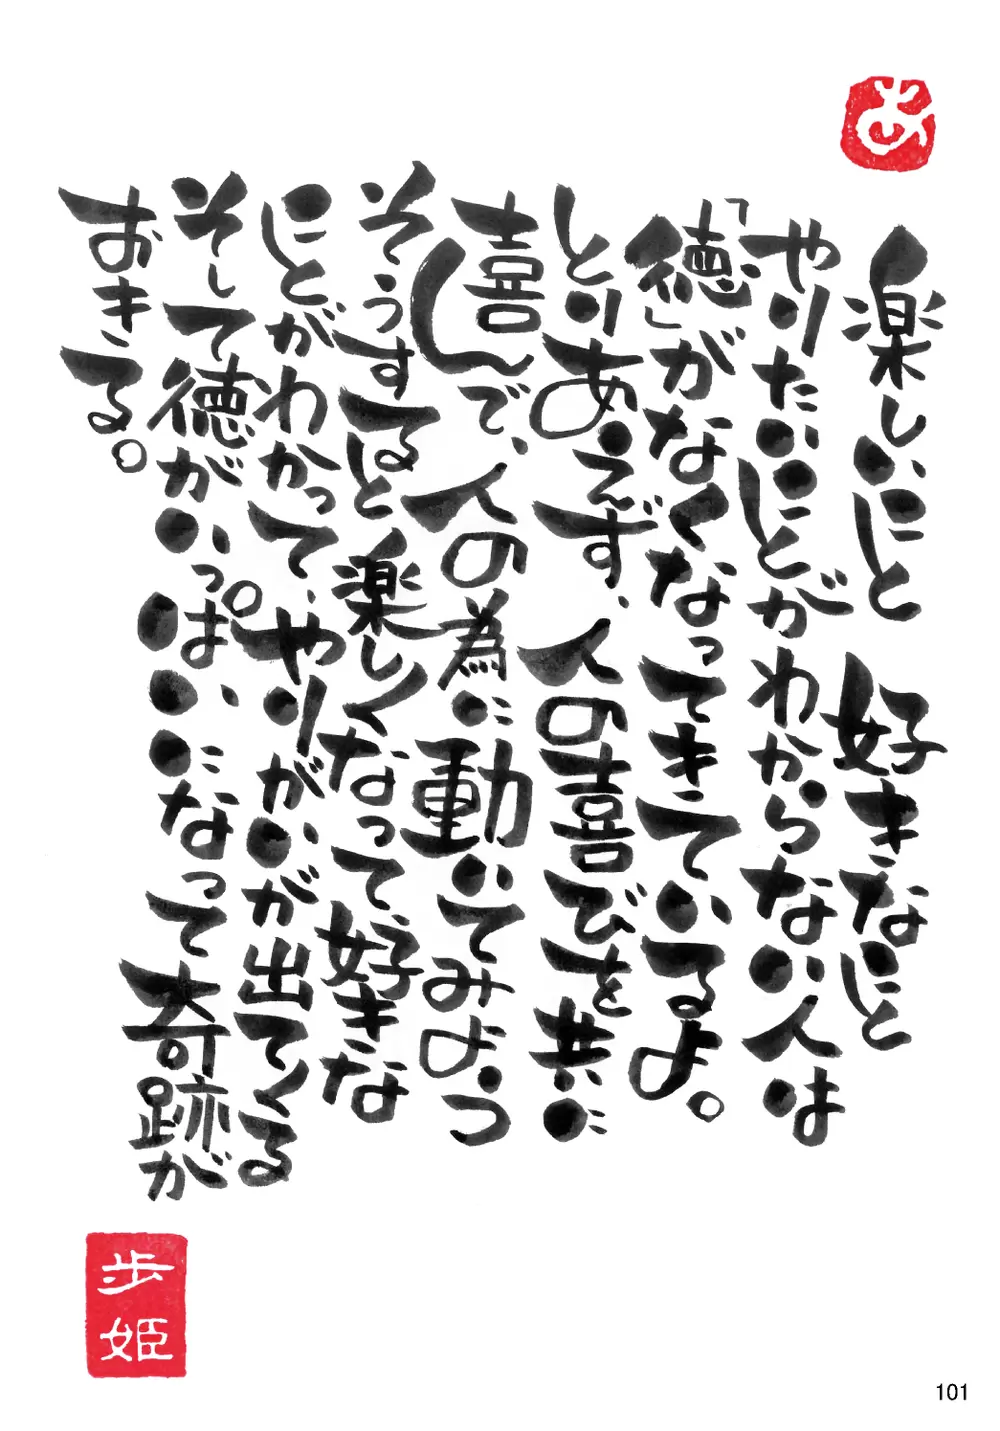 あ
楽しいこと 好きなこと
やりたいことがわからない人は
「徳」がなくなってきているよ。
とりあえず、人の喜びを共に
喜んで、人の為に動いてみよう
そうすると楽しくなって、好きな
ことがわかって、やりがいが出てくる
そして徳がいっぱいになって奇跡が
おきる。
歩姫
101